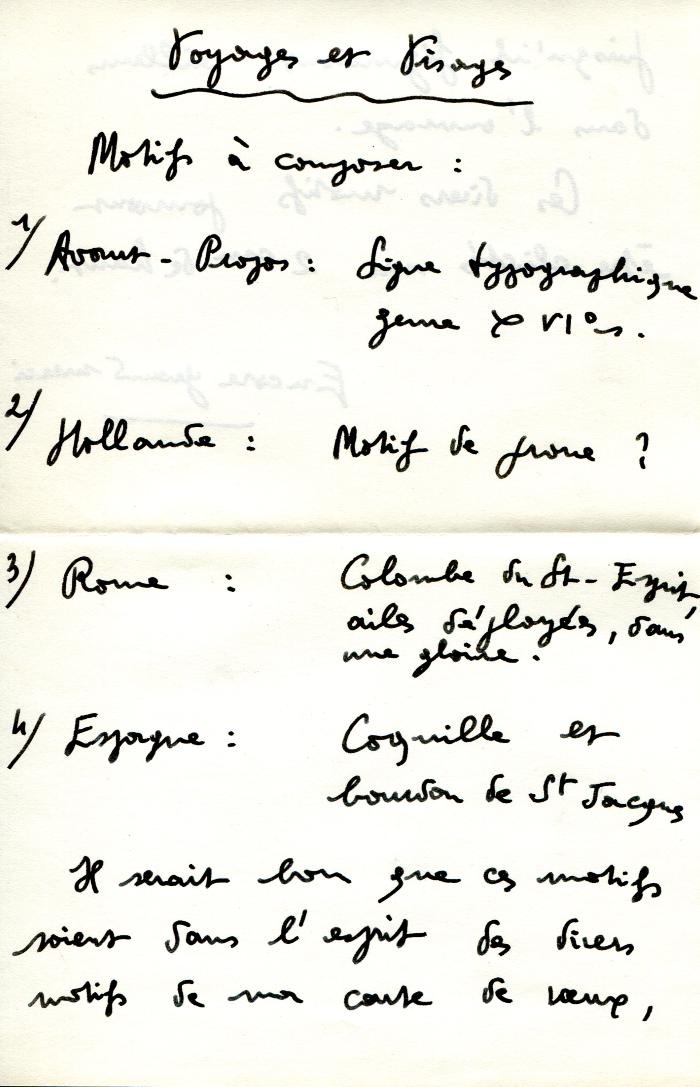 Voyages et Visages
Motifs à composer :
1/ Avant-Propos : Ligne typographique
genre XVI°s.
2/ Hollande : Motif de proue ?
3/ Rome : Colombe du St-Esprit,
ailes déployées, dans
une gloire.
4/ Espagne : Coquille et
bourdon de St Jacques
Il serait bon que ces motifs
soient dans l'esprit des divers
motifs de ma carte de vœux,